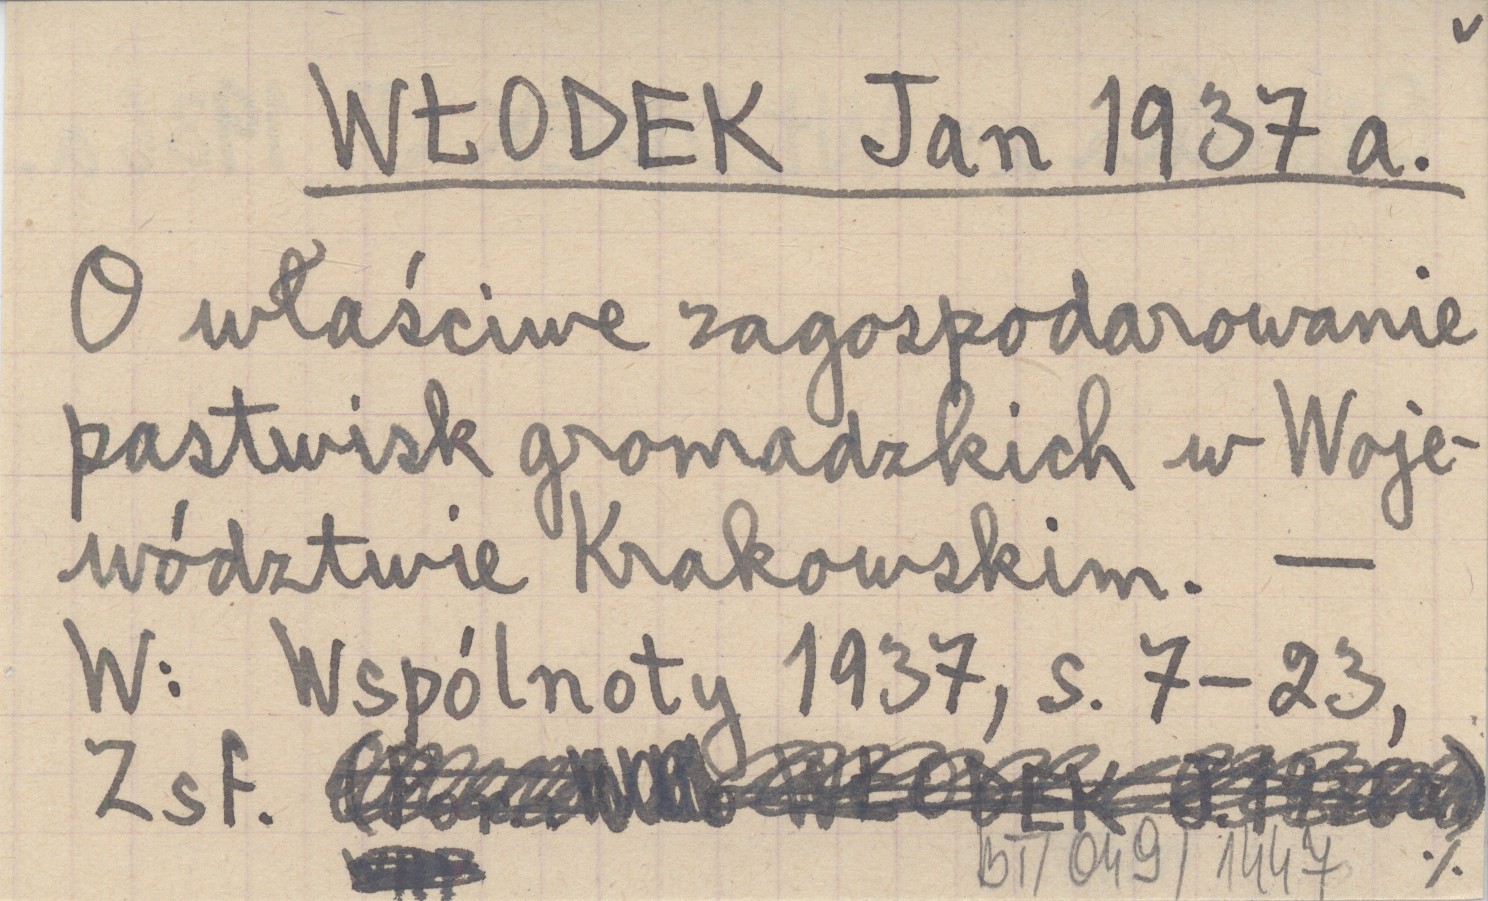 WŁODEK Jan 1937 a.
O właściwe zagospodarowanie
pastwisk gromadzkich w Woje-
wództwie Krakowskim. —
W: Wspólnoty 1937, s. 7–23,
2 sf.
BT/049/1447 ·/.